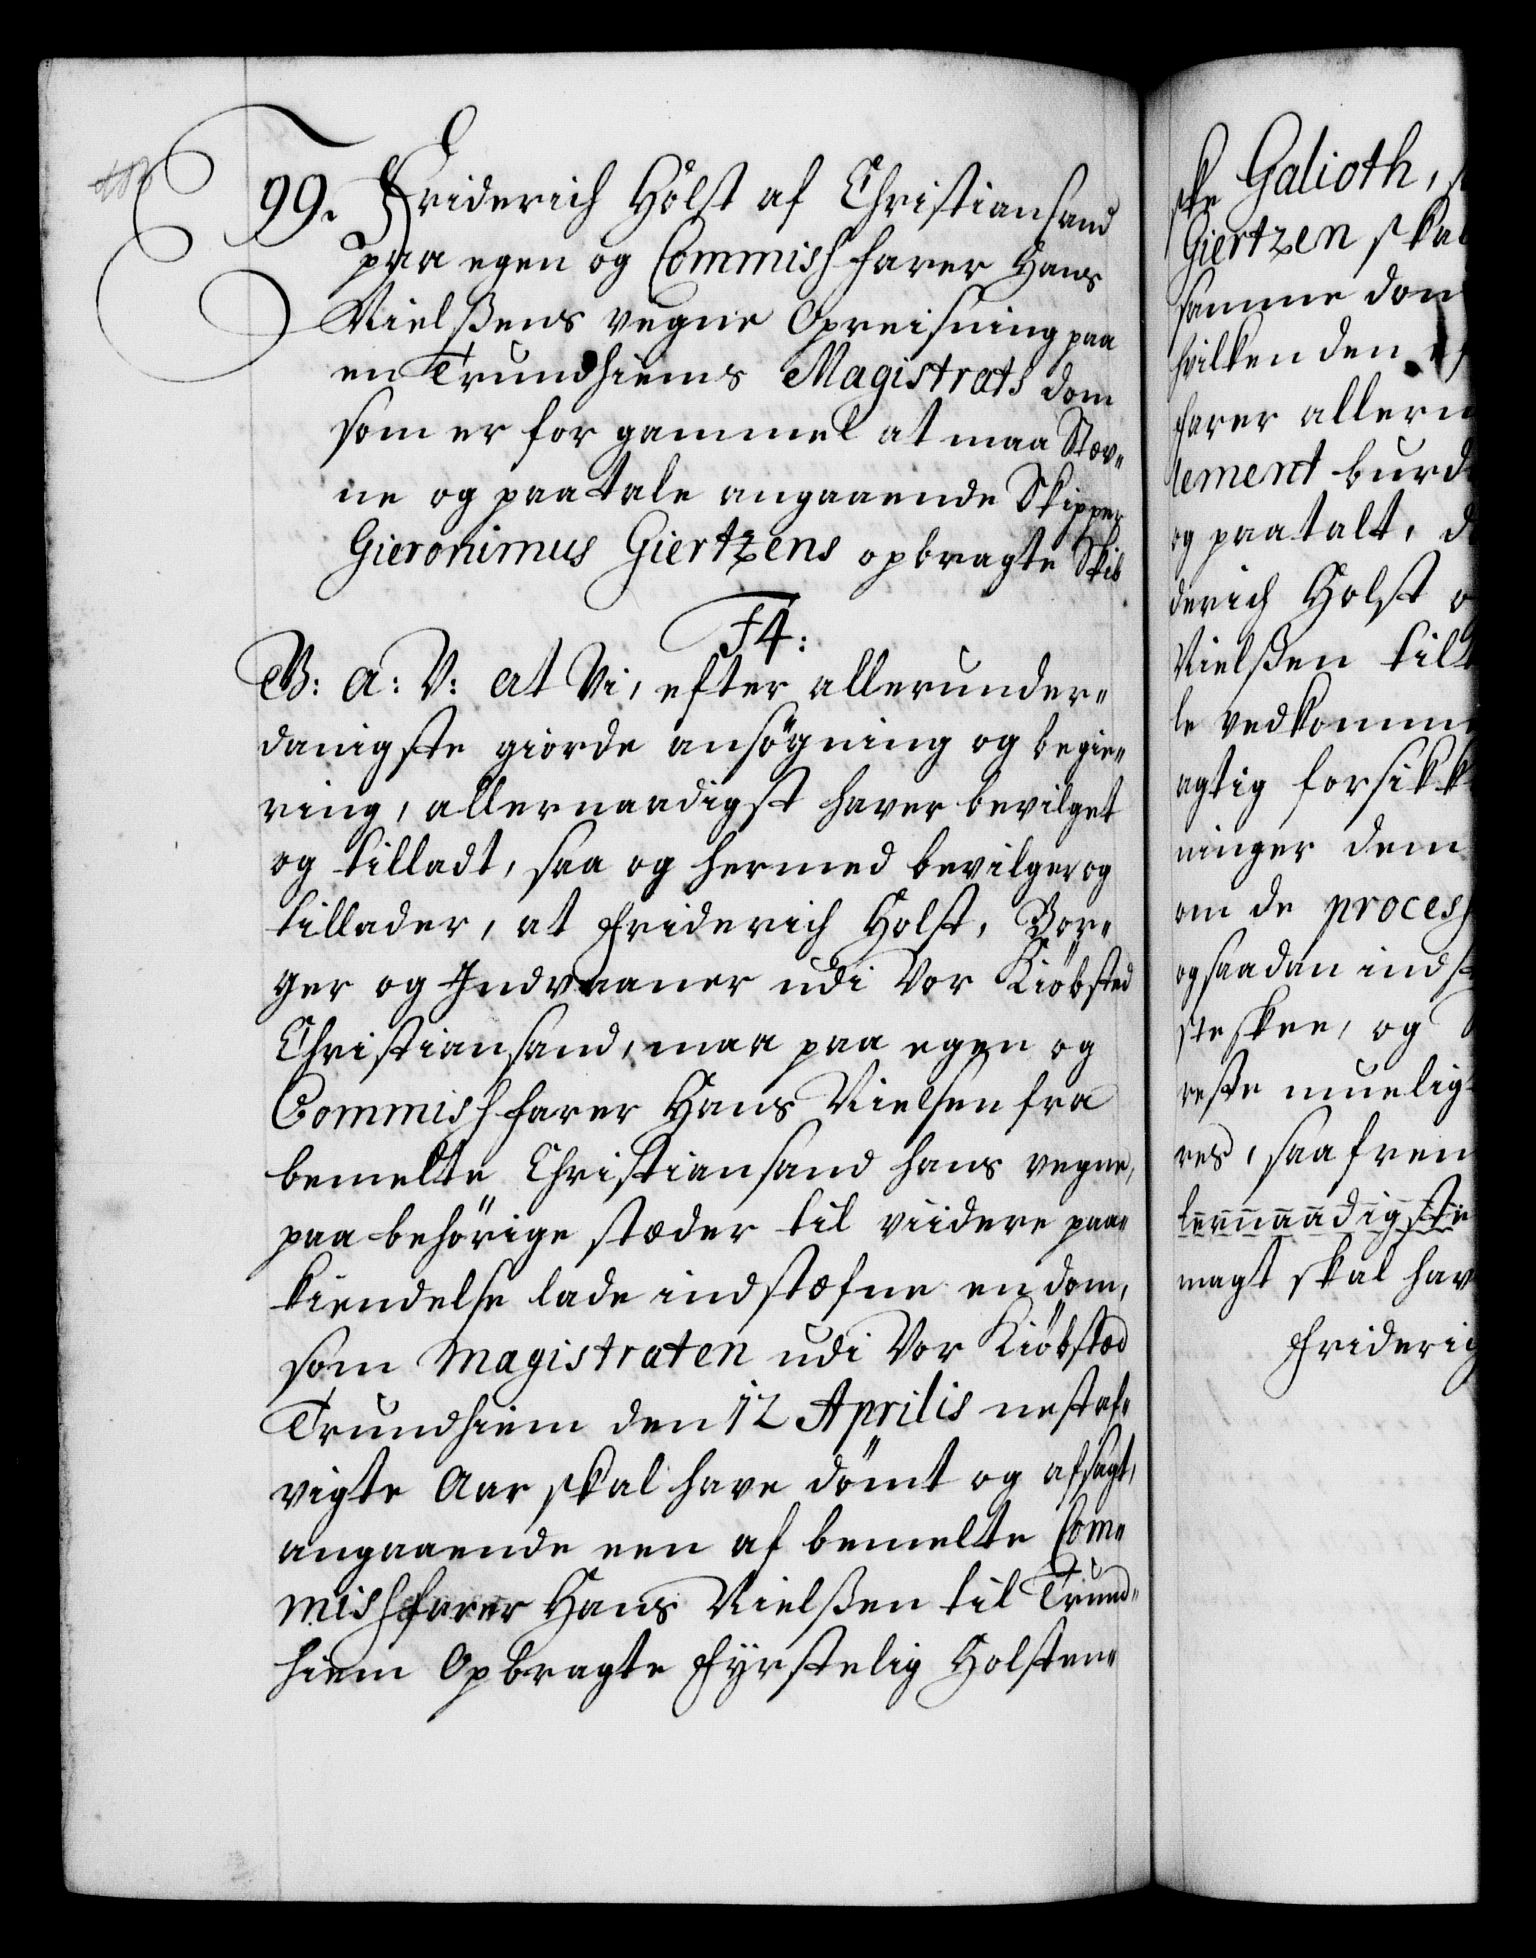 99. Friderich Holst af Christiansand
paa egen og Commissfarer Hans
Nielßens vegne Opreisning paa
en Trundhiems Magistrats dom
som er for gammel at maa Stæv„
ne og paatale angaaende Skipper
Gieronimus Giertzens opbragte Skib
F4:
B: A: V: at Vi, efter allerunder„
danigste giorde ansögning og begie„
ring, allernaadigst haver bevilget
og tilladt, saa og hermed bevilger og
tillader, at Friderich Holst, Bor„
ger og Indvaaner udi Vor Kiöbsted
Christiansand, maa paa egen og
Commissfarer Hans Nielsen fra
bemelte Christiansand hans vegne,
paa behörige stæder til viidere paa„
kiendelse lade indstæfne en dom,
som Magistraten udi Vor Kiöbstæd
Trundhiem den 12 Aprilis nestaf„
vigte Aar skal have dömt og afsagt,
angaaende een af bemelte Com„
missfarer Hans Nielßen til Trund„
hiem Opbragte Fyrstelig Holsteen„
ske Galioth,
Giertzen skal
samme dom
hvilken den
farer allern
lement burde
og paatalt, d
derich Holst o
Nielßen tilt
le vedkomme
agtig forsikk
ninger dem
om de process
og saadan indst
ste skee, og
reste muelig
res, saafrem
lernaadigste
magt skal hav
Friderig